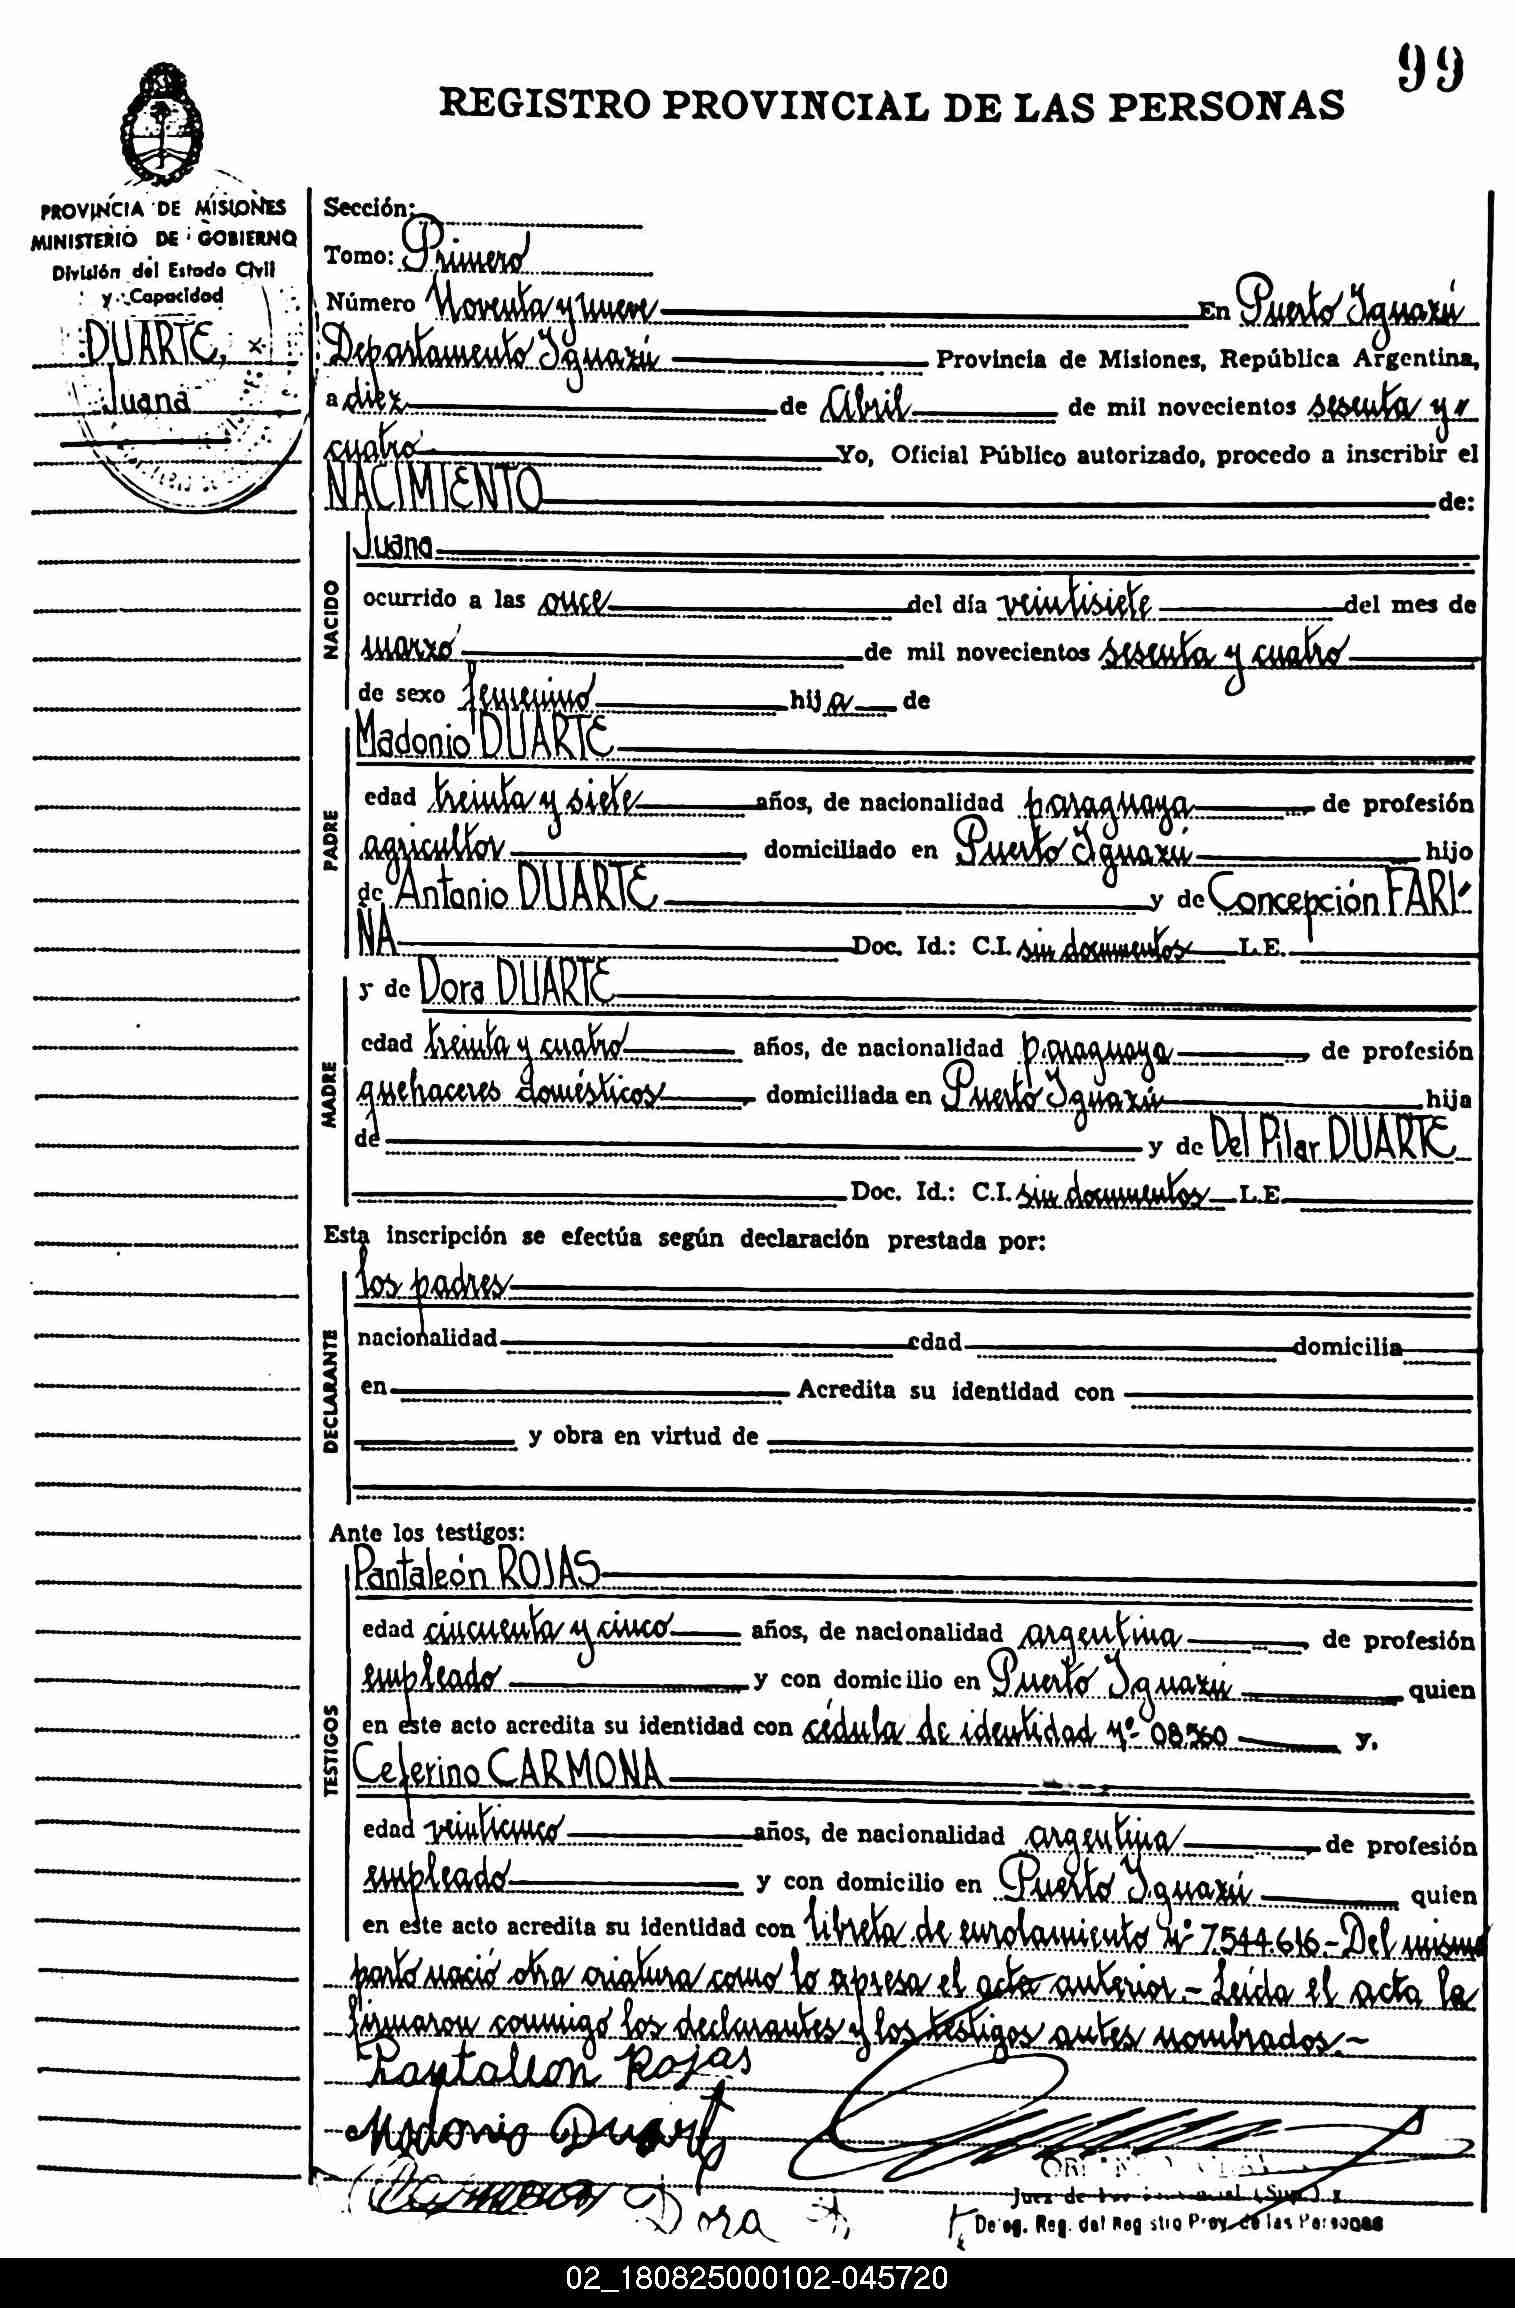 99
REGISTRO PROVINCIAL DE LAS PERSONAS
PROVINCIA DE MISIONES
MINISTERIO DE GOBIERNO
División del Estado Civil
y Capacidad
DUARTE,
Juana
Sección:
Tomo: Primero
Número Noventa y nueve En Puerto Iguazú
Departamento Iguazú Provincia de Misiones, República Argentina,
a diez de Abril de mil novecientos sesenta y
cuatro Yo, Oficial Público autorizado, procedo a inscribir el
NACIMIENTO de:
NACIDO
Juana
ocurrido a las once del día veintisiete del mes de
marzo de mil novecientos sesenta y cuatro
de sexo femenino hija de
PADRE
Madonio DUARTE
edad treinta y siete años, de nacionalidad paraguaya de profesión
agricultor, domiciliado en Puerto Iguazú hijo
de Antonio DUARTE y de Concepción FARI-
NA Doc. Id.: C.I. sin documentos L.E.
MADRE
y de Dora DUARTE
edad treinta y cuatro años, de nacionalidad paraguaya de profesión
quehaceres domésticos, domiciliada en Puerto Iguazú hija
de y de Del Pilar DUARTE
Doc. Id.: C.I. sin documentos L.E.
Esta inscripción se efectúa según declaración prestada por:
DECLARANTE
los padres
nacionalidad edad domicilia
en Acredita su identidad con
y obra en virtud de
Ante los testigos:
TESTIGOS
Pantaleón ROJAS
edad cincuenta y cinco años, de nacionalidad argentina de profesión
empleado y con domicilio en Puerto Iguazú quien
en este acto acredita su identidad con cédula de identidad Nº 08560 y.
Ceferino CARMONA
edad veinticinco años, de nacionalidad argentina de profesión
empleado y con domicilio en Puerto Iguazú quien
en este acto acredita su identidad con libreta de enrolamiento Nº 7.544.616.- Del mismo
parto nació otra criatura como lo expresa el acta anterior.- Leída el acta la
firmaron conmigo los declarantes y los testigos antes nombrados.-
Pantalion Rojas
Madonio Duart
Dora
Deleg. Reg. del Registro Prov. de las Personas
02_180825000102-045720